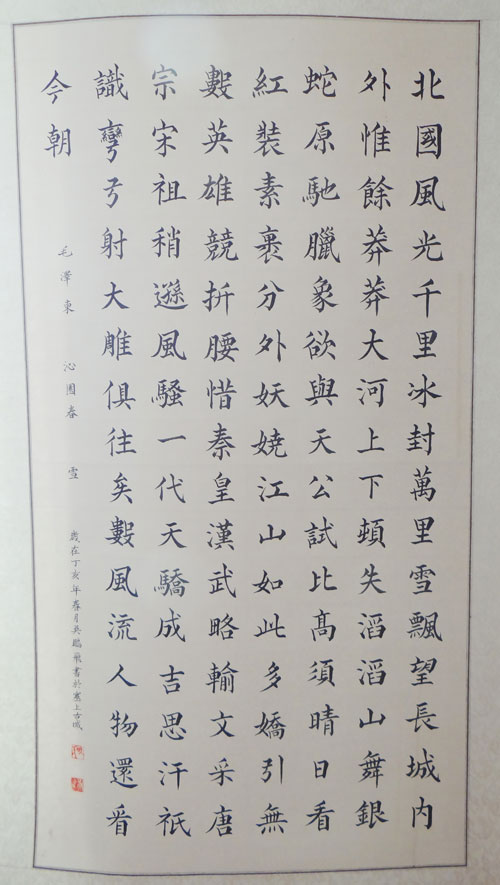 北國風光千里冰封萬里雪飄望長城內
外惟餘莽莽大河上下頓失滔滔山舞銀
蛇原馳臘象欲與天公試比髙須晴日看
紅裝素裹分外妖嬈江山如此多嬌引無
數英雄競折腰惜秦皇漢武略輸文采唐
宗宋祖稍遜風騷一代天驕成吉思汗祇
識彎弓射大雕俱往矣數風流人物還看
今朝
毛澤東 沁園春 雪 歲在丁亥年春月吳飛書於塞上古城